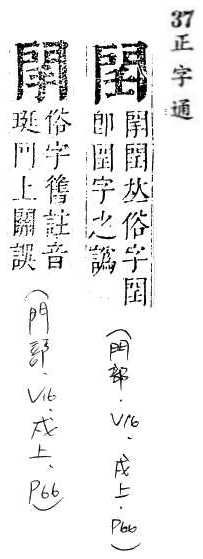 37
正字通
閠
閠𠀤俗字閠
即閏字之譌
(門部.V16.戌上.P66)
俗字舊註音
珽門上關誤
(門部.V16.戌上.P66)